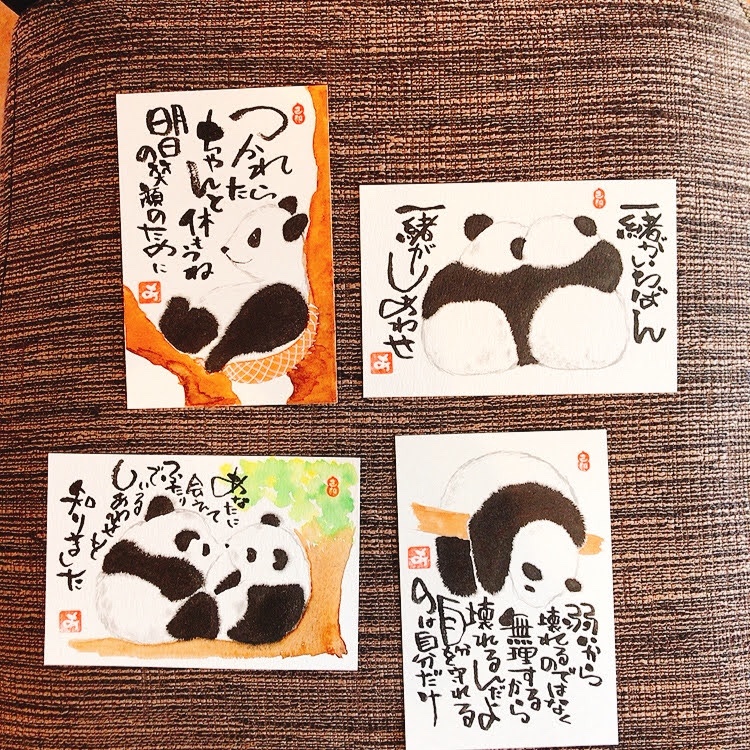 つかれたら
ちゃんと休もうね
明日の笑顔のために
一緒がいちばん
一緒がしあわせ
あなたに
会えて
ふたり
でいる
しあわせを
知りました
弱いから
壊れるのではなく
無理するから
壊れるんだよ
自分を守れる
のは自分だけ